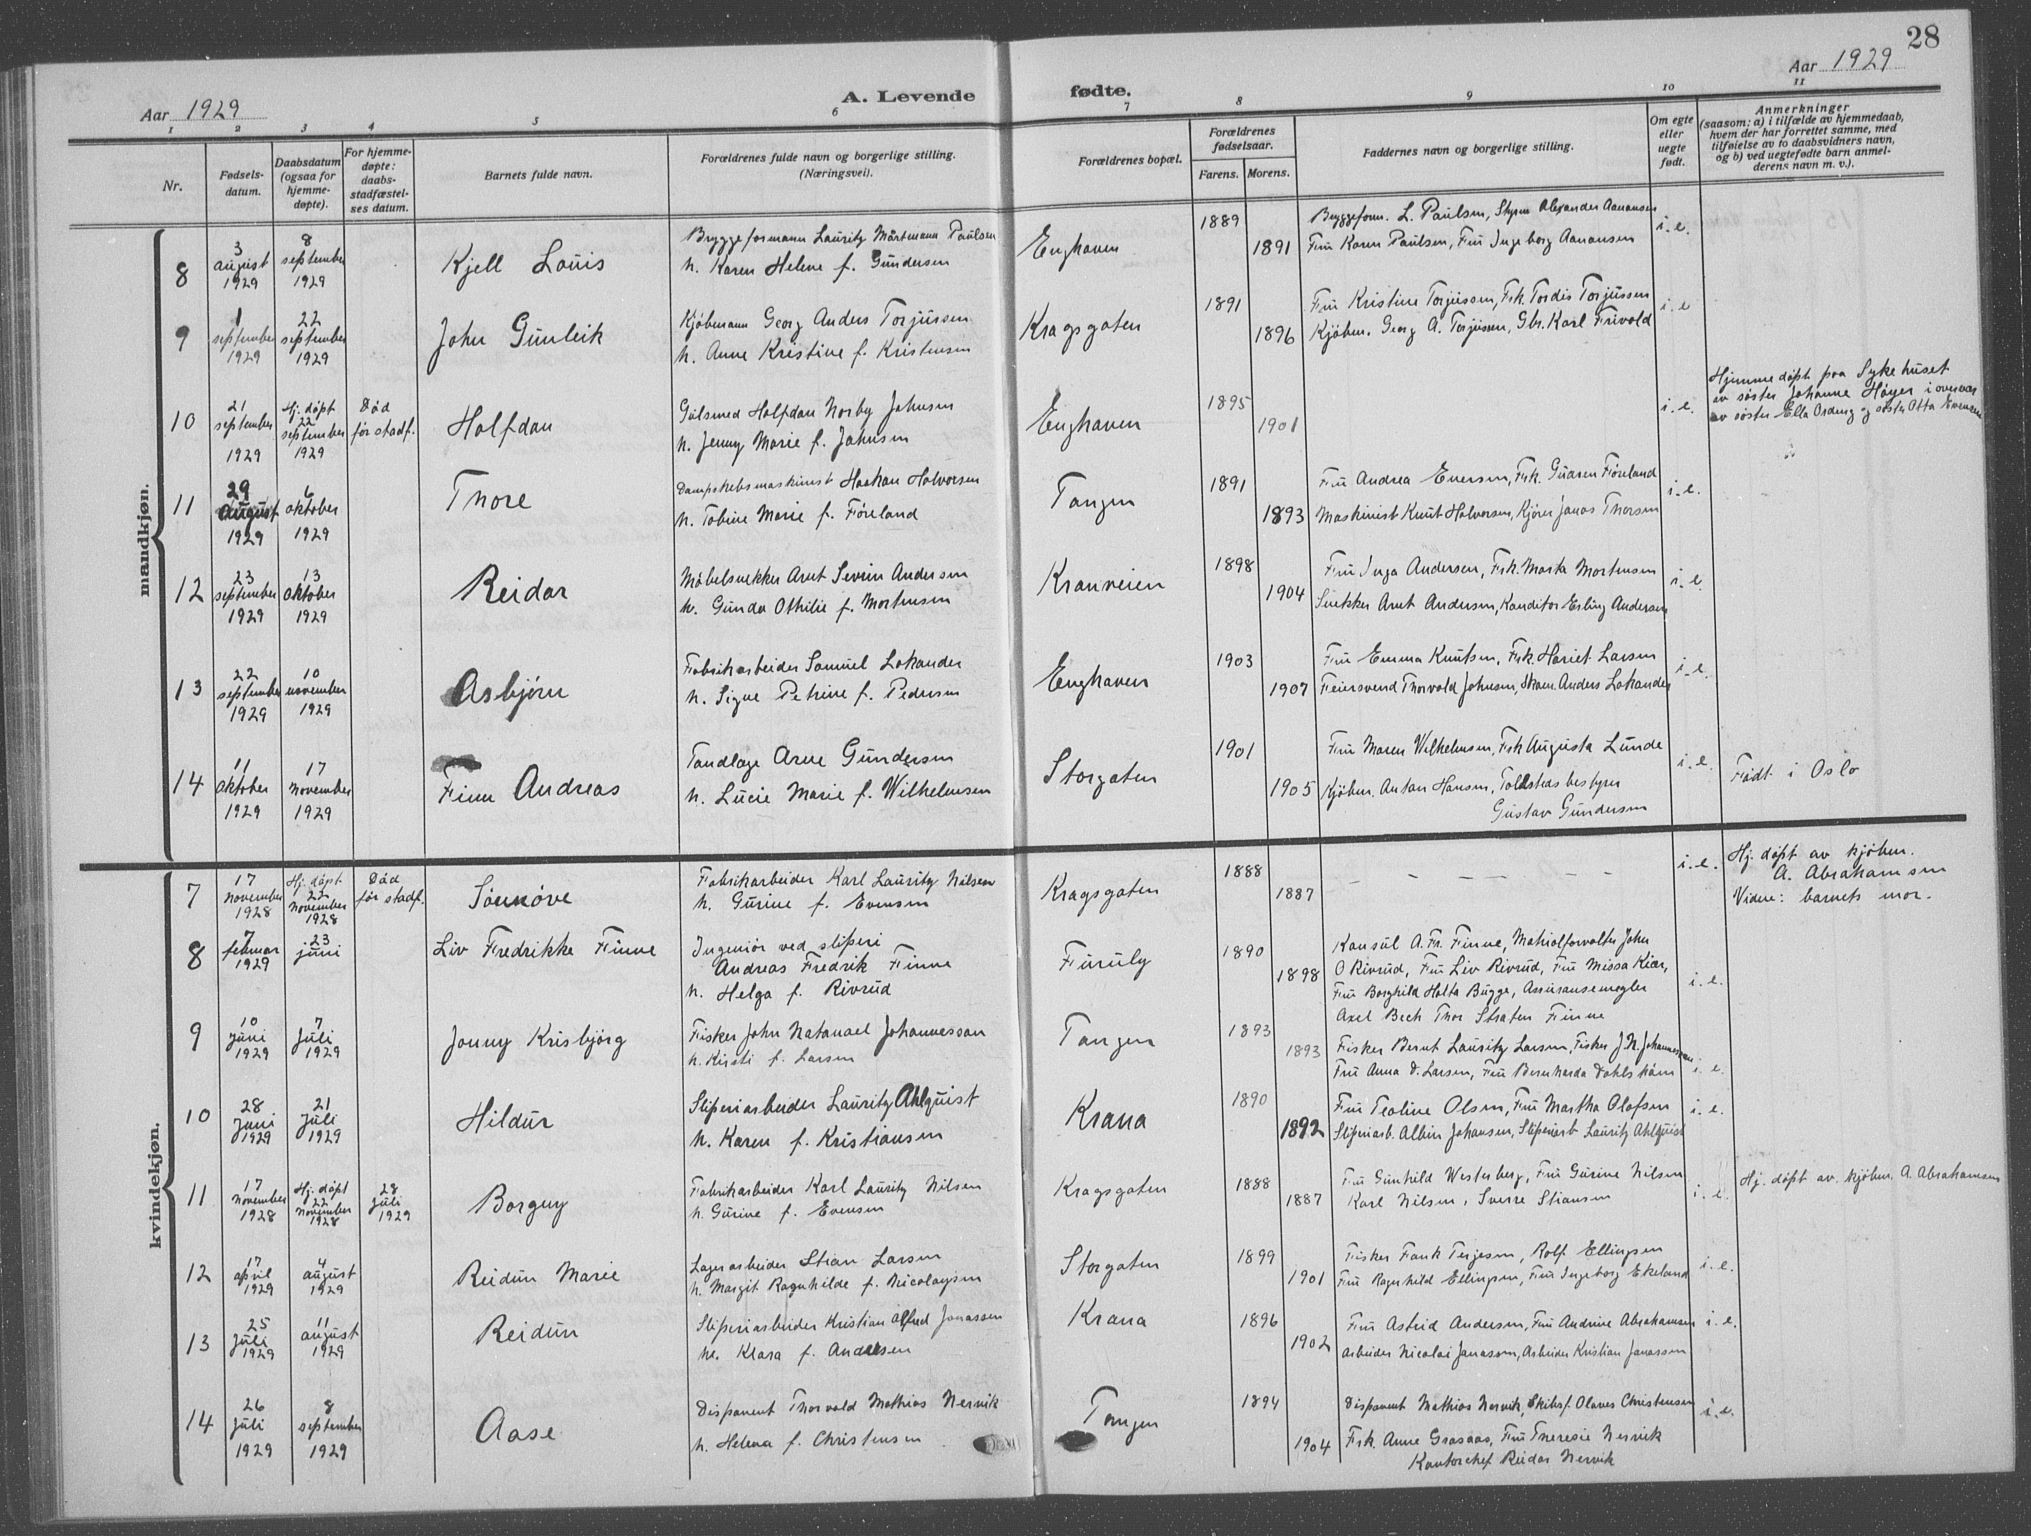 28
Aar 1929
A. Levende
fødte.
Aar 1929
1 2 3 4 5 6 7 8 9 10 11
Nr.
Fødsels-
datum.
Daabsdatum
(ogsaa for
hjemme-
døpte).
For hjemme-
døpte:
daabs-
stadfæstel-
ses datum.
Barnets fulde navn.
Forældrenes fulde navn og borgerlige stilling.
(Næringsvei).
Forældrenes bopæl.
Forældrenes
fødselsaar.
Farens. Morens.
Faddernes navn og borgerlige stilling.
Om egte
eller
uegte
født.
Anmerkninger
(saasom: a) i tilfælde av hjemmedaab,
hvem der har forrettet samme, med
tilføielse av to daabsvidners navn,
og b) ved uegtefødte barn anmel-
derens navn m. v.).
mandkjøn.
8
3
august
1929
8
september
1929
Kjell Louis
Bryggeformann Lauritz Mårtmann Paulsen
h. Karen Helene f. Gundersen
Enghaven
1889
1891
Bryggeform. L. Paulsen, Styrm Alexander Aanansen
Fru Karen Paulsen, Fru Ingeborg Aanansen
i. e.
9
1
september
1929
22
september
1929
John Gunleik
Kjøbmann Georg Anders Torjussen
h. Anne Kristine f. Kristensen
Kragsgaten
1891
1896
Fru Kristine Torjussen, Frk. Tordis Torjussen
Kjøbm. Georg A. Torjussen, Gbr. Karl Frivold
i. e
10
21
september
1929
Hj. døpt
22
september
1929
Død
før stadf.
Halfdan
Gulsmed Halfdan Norby Johnsen
h. Jenny Marie f. Johnsen
Enghaven
1895
1901
i. e.
Hjemmedøpt paa Sykehuset
av søster Johanne Høyer i overvær
av søster Ella Ordeng og søster Otta Evensen
11
29
August
1929
6
oktober
1929
Thore
Dampskibsmaskinist Haakon Halvorsen
h. Tobine Marie f. Føreland
Tangen
1891
1893
Fru Andrea Evensen, Frk. Gudrun Føreland
Maskinist Knut Halvorsen, Kjører Jonas Thorsen
i. e.
12
23
september
1929
13
oktober
1929
Reidar
Møbelsnekker Arnt Severin Andersen
h. Gunda Othilie f. Mortensen
Kranveien
1898
1904
Fru Inga Andersen, Frk. Marta Mortensen
Snekker Arnt Andersen, Konditor Erling Andersen
i. e.
13
22
september
1929
10
november
1929
Asbjørn
Fabrikarbeider Samuel Lokander
h. Signe Petrine f. Pedersen
Enghaven
1903
1907
Fru Emma Knutsen, Frk. Hariet Larsen
Feiersvend Thorvald Johnsen, Skom. Anders Lokander
i. e.
14
11
oktober
1929
17
november
1929
Finn Andreas
Tandlæge Arne Gundersen
h. Lucie Marie f. Wilhelmsen
Storgaten
1901
1905
Fru Maren Wilhelmsen, Frk Augusta Lunde
Kjøbm. Anton Hansen, Tollstedsbestyrer
Gustav Gundersen
i. e.
Født i Oslo
kvindekjøn.
7
17
november
1928
Hj. døpt
22
november
1928
Død
før stadf.
Sønnøve
Fabrikarbeider Karl Lauritz Nilsen
h. Gurine f. Evensen
Kragsgaten
1888
1887
– – – – – –
i. e.
Hj. døpt av kjøbm.
A. Abrahamsen
Videre: barnets mor.
8
7
februar
1929
23
juni
Liv Fredrikke Finne
Ingeniør ved sliperi
Andreas Fredrik Finne
h. Helga f. Rivrud
Furuly
1890
1898
Konsul A. Fr. Finne, Matrialforvalter John
O Rivrud, Fru Liv Rivrud, Fru Missa Kiær,
Fru Borghild Holta Bugge, Assuransemegler
Axel Bech Thor Straten Finne
i. e.
9
10
juni
1929
7
Juli
1929
Jonny Krisbjørg
Fisker John Natanael Johannesson
h. Kirsti f. Larsen
Tangen
1893
1893
Fisker Bernt Lauritz Larsen, Fisker J. N. Johannessen
Fru Anna D. Larsen, Fru Bernharda Dahlskåm
i. e.
10
28
juni
1929
21
Juli
1929
Hildur
Sliperiarbeider Lauritz Ahlquist
h. Karen f. Kristiansen
Krana
1890
1892
Fru Teoline Olsen, Fru Martha Olofsen
Sliperiarb. Albin Johansen, Sliperiarb Lauritz Ahlquist
i. e.
11
17
November
1928
Hj. døpt
22
November
1928
28
Juli
1929
Borguy
Fabrikarbeider Karl Lauritz Nilsen
h. Gurine f. Evensen
Kragsgaten
1888
1887
Fru Gunhild Westerberg, Fru Gurine Nilsen
Karl Nilsen, Sverre Stiansen
i. e.
Hj. døpt av. kjøbm. A. Abrahamsen
12
17
april
1929
4
august
1929
Reidun Marie
Lagerarbeider Stian Larsen
h. Margit Ragnhilde f. Nicolaysen
Storgaten
1899
1901
Fisker Fank Terjesen, Rolf Ellingsen
Fru Ragnhild Ellingsen, Fru Ingeborg Ekeland
i. e.
13
25
Juli
1929
11
august
1929
Reidun
Sliperiarbeider Kristian Alfred Jonassen
h. Klara f. Andersen
Krana
1896
1902
Fru Astrid Andersen, Fru Andrine Abrahamsen
Arbeider Nicolai Jonassen, Arbeider Kristian Jonassen
i. e.
14
26
Juli
1929
8
september
1929
Aase
Disponent Thorvald Mathias Nervik
h. Helena f. Christensen
Tangen
1894
1904
Disponent Mathias Nervik, Skibsf. Olaves Christensen
Frk. Anne Graaaas, Fru Theresie Nervik
Kontorchef Reidar Nervik
i. e.